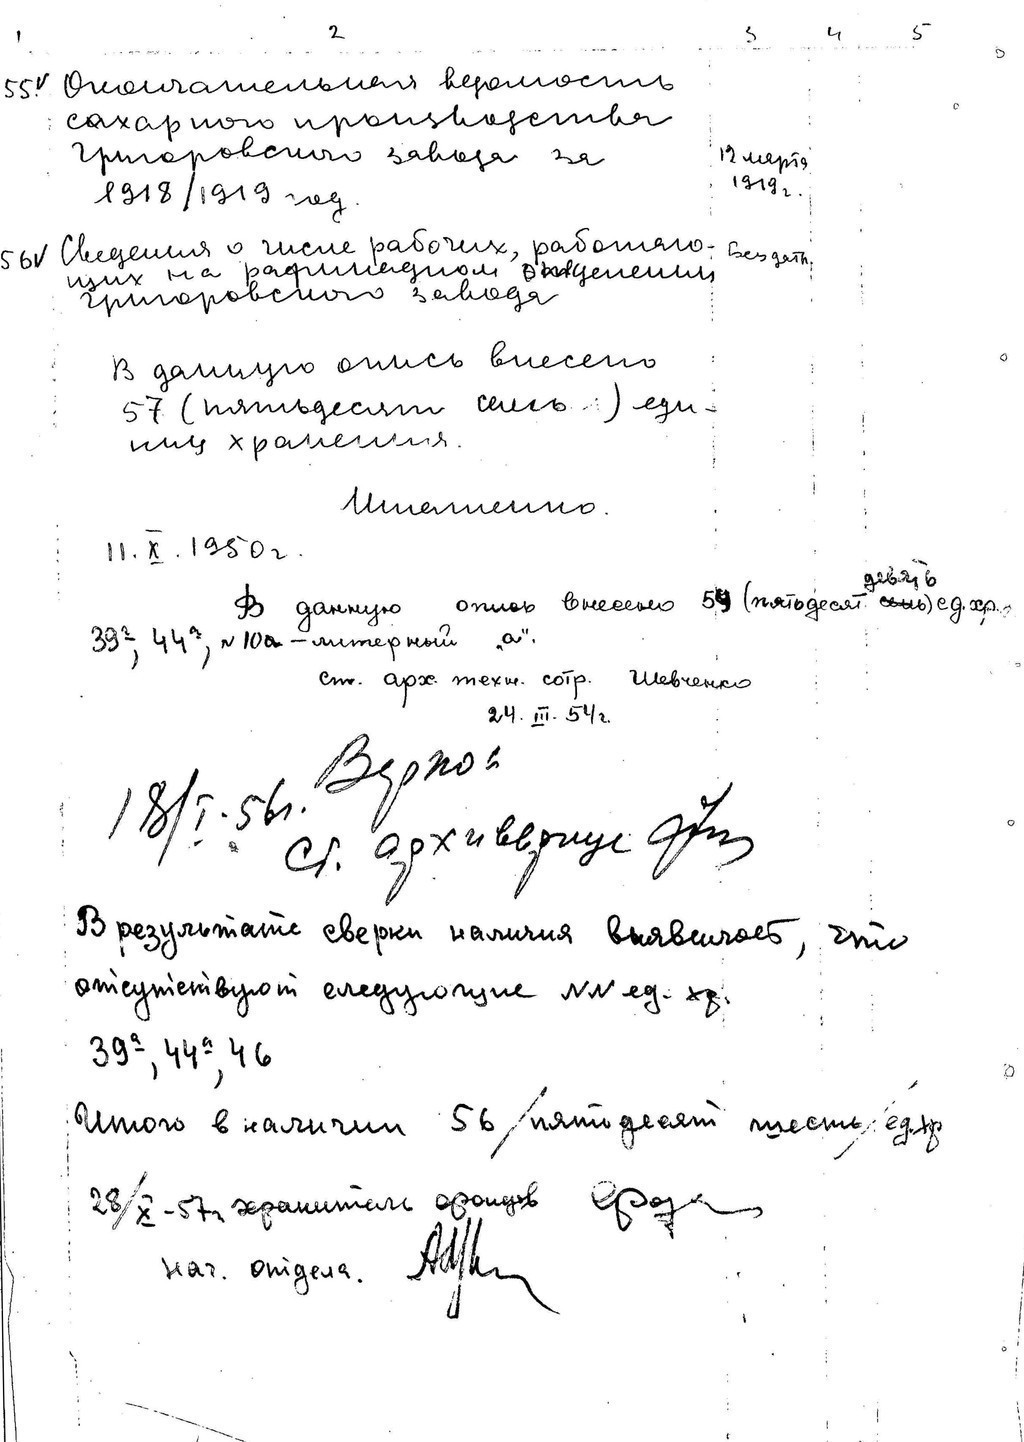 1 2 3 4 5
55. Окончательная ведомость
сахарного производства
Григоровского завода за
1918/1919 год.
12 марта
1919 г.
56 Сведения о числе рабочих, работаю-
щих на рафинадном отделении
Григоровского завода
Без даты.
В данную опись внесено
57 (пятьдесят семь) еди-
ниц хранения.
Игнатенко.
11. X. 1950 г.
девять
В данную опись внесено 59 (пятьдесят семь) ед. хр.
39а, 44а, N 10а – литерный "а".
ст. арх. техн. сотр. Шевченко
24. III. 54 г.
Верно:
18/I. 56 г.
Ст. архивариус
В результате сверки наличия выявилось, что
отсутствуют следующие NN ед. хр.
39а, 44а, 46
Итого в наличии 56 /пятьдесят шесть/ ед. хр
28/X – 57 г. хранитель фондов
нач. отдела.